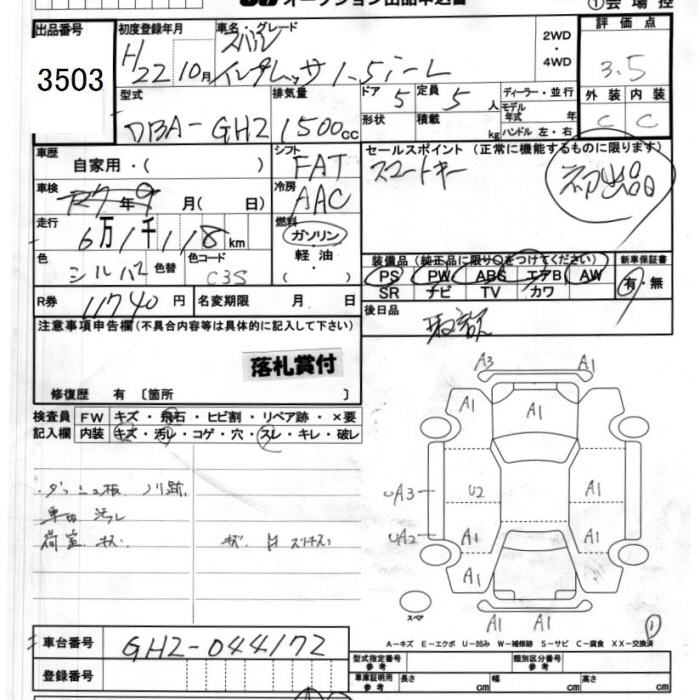 オークション出品申込書 ①会場控
出品番号 3503
初度登録年月 H22 10月
車名・グレード スバル インプレッサ 1.5i-L
2WD・4WD
評価点 3.5
外装 C 内装 C
型式 DBA-GH2
排気量 1500cc
ドア 5 定員 5人
形状 積載 kg
ディーラー・並行
モデル年式 年
ハンドル 左・右
車歴 自家用・( )
シフト FAT
セールスポイント(正常に機能するものに限ります)
スマートキー
初出品
車検 年 9月( 日)
冷房 AAC
走行 6万1千118km
燃料 ガソリン・軽油・( )
色 シルバー 色替 色コード C3S
R券 11740円 名変期限 月 日
装備品(純正品に限り○をつけてください)
PS PW ABS エアB AW
SR ナビ TV カワ
新車保証書 有・無
後日品 取説
注意事項申告欄(不具合内容等は具体的に記入して下さい)
落札賞付
修復歴 有〔箇所 〕
検査員記入欄
FW キズ・飛石・ヒビ割・リペア跡・×要
内装 キズ・汚レ・コゲ・穴・スレ・キレ・破レ
・ダッシュ板 ノリ跡
車内 汚レ
荷室 キズ
A3 A1
A1 A1 A1
UA3 U2 A1
UA2 A1 A1
A1 A1
A1 A1
スペア
①
A-キズ E-エクボ U-凹み W-補修跡 S-サビ C-腐食 XX-交換済
車台番号 GH2-044172
登録番号
型式指定番号参考 類別区分番号参考
車庫証明用参考 長さ cm 幅 cm 高さ cm